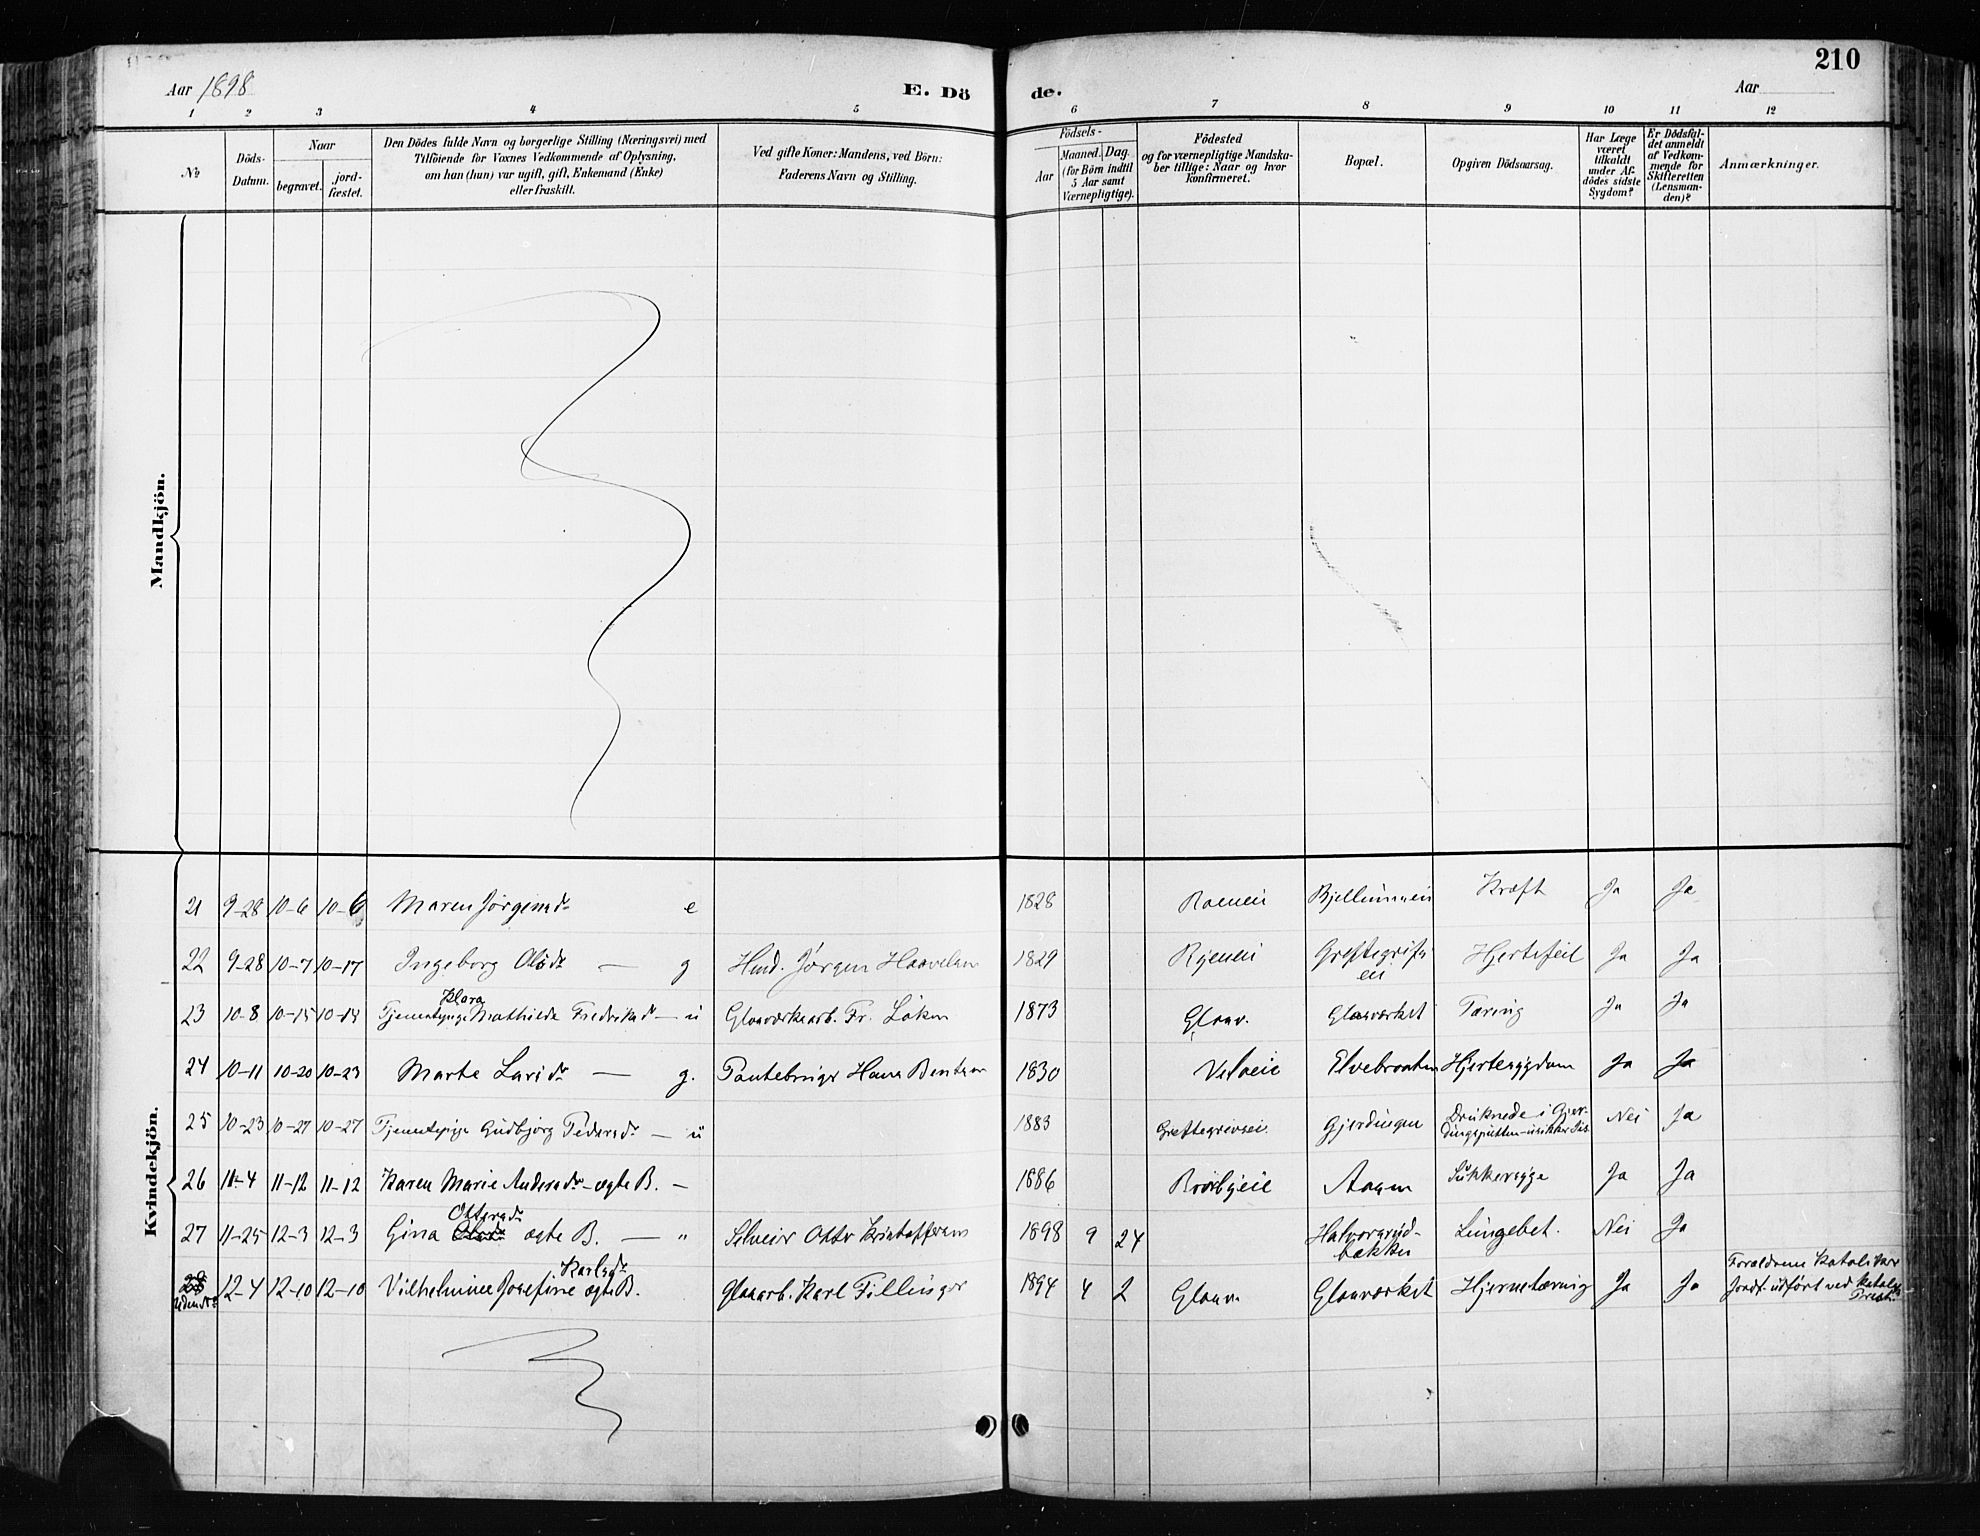 210
Aar 1898
E. Dö
de.
Aar
1 2 3 4 5 6 7 8 9 10 11 12
№
Döds-
Datum.
Naar
begravet.
jord-
fæstet.
Den Dödes fulde Navn og borgerlige Stilling (Næringsvei) med
Tilföiende for Voxnes Vedkommende af Oplysning,
om han (hun) var ugift, gift, Enkemand (Enke)
eller fraskilt.
Ved gifte Koner: Mandens, ved Börn:
Faderens Navn og Stilling.
Födsels-
Aar
Maaned. Dag.
(for Börn indtil
5 Aar samt
Værnepligtige).
Födested
og for værnepligtige Mandska-
ber tillige: Naar og hvor
konfirmeret.
Bopæl.
Opgiven Dödsaarsag.
Har Læge
været
tilkaldt
under Af-
dödes sidste
Sygdom?
Er Dödsfal-
det anmeldt
af Vedkom-
mende for
Skifteretten
(Lensman-
den)?
Anmærkninger.
Mandkjön.
Kvindekjön.
21 9-28 10-6 10-6 Maren Jörgensdr e 1828 Kræft Ja Ja
22 9-28 10-7 10-17 Ingeborg Olsdr — g Hmd. Jörgen 1829 Ryeneie Hjertefeil Ja Ja
Klara
23 10-8 10-15 10-14 Tjenestepige Mathilde Fredriksdr — u Glasværksarb. Fr. Löken 1873 Glasv. Glasværket Tæring Ja Ja
24 10-11 10-20 10-23 Marte Larsdr — g. Hans Bentsen 1830 Elvebraaten Hjertesygdom Ja Ja
25 10-23 10-27 10-27 Tjenestepige Gudbjörg Pedersdr — u 1883 Gjerdingen Druknede i Gjer-
dingsputten Nei Ja
26 11-4 11-12 11-12 Karen Marie Andersdr — ægte B. — 1886 Aasen Sukkersyge Ja Ja
Ottersdr
27 11-25 12-3 12-3 Gina ægte B. — " Selveier Otter Kristoffersen 1898 9 24 Halvorsrud-
bakken Lungebet. Nei Ja
Karlsdr
28 12-4 12-10 12-10 Vilhelmine Josefine ægte B. Glasarb. Karl Fillinger 1894 4 2 Glasv. Glasværket Hjernetæring Ja Ja
uden No
Forældrene Katoliker
Jordf. udfört ved katolsk
Prest.